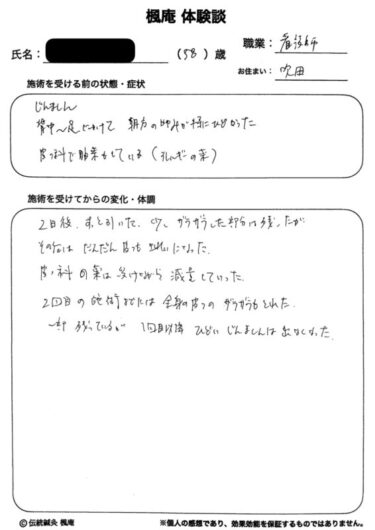 楓庵 体験談
氏名： （58）歳
職業： 看護師
お住まい： 吹田
施術を受ける前の状態・症状
じんましん
背中〜足にかけて 朝方の痒みが特にひどかった
皮フ科で服薬をしている（アレルギーの薬）
施術を受けてからの変化・体調
2日後、すっと引いた。少しガサガサした部分は残ったが
その後はだんだん皮フもきれいになった。
皮フ科の薬は受けながら減量していった。
2回目の施術までには全身の皮フのガサガサもとれた。
一部残っているが 1回目以降ひどいじんましんは出なくなった。
© 伝統鍼灸 楓庵
※個人の感想であり、効果効能を保証するものではありません。